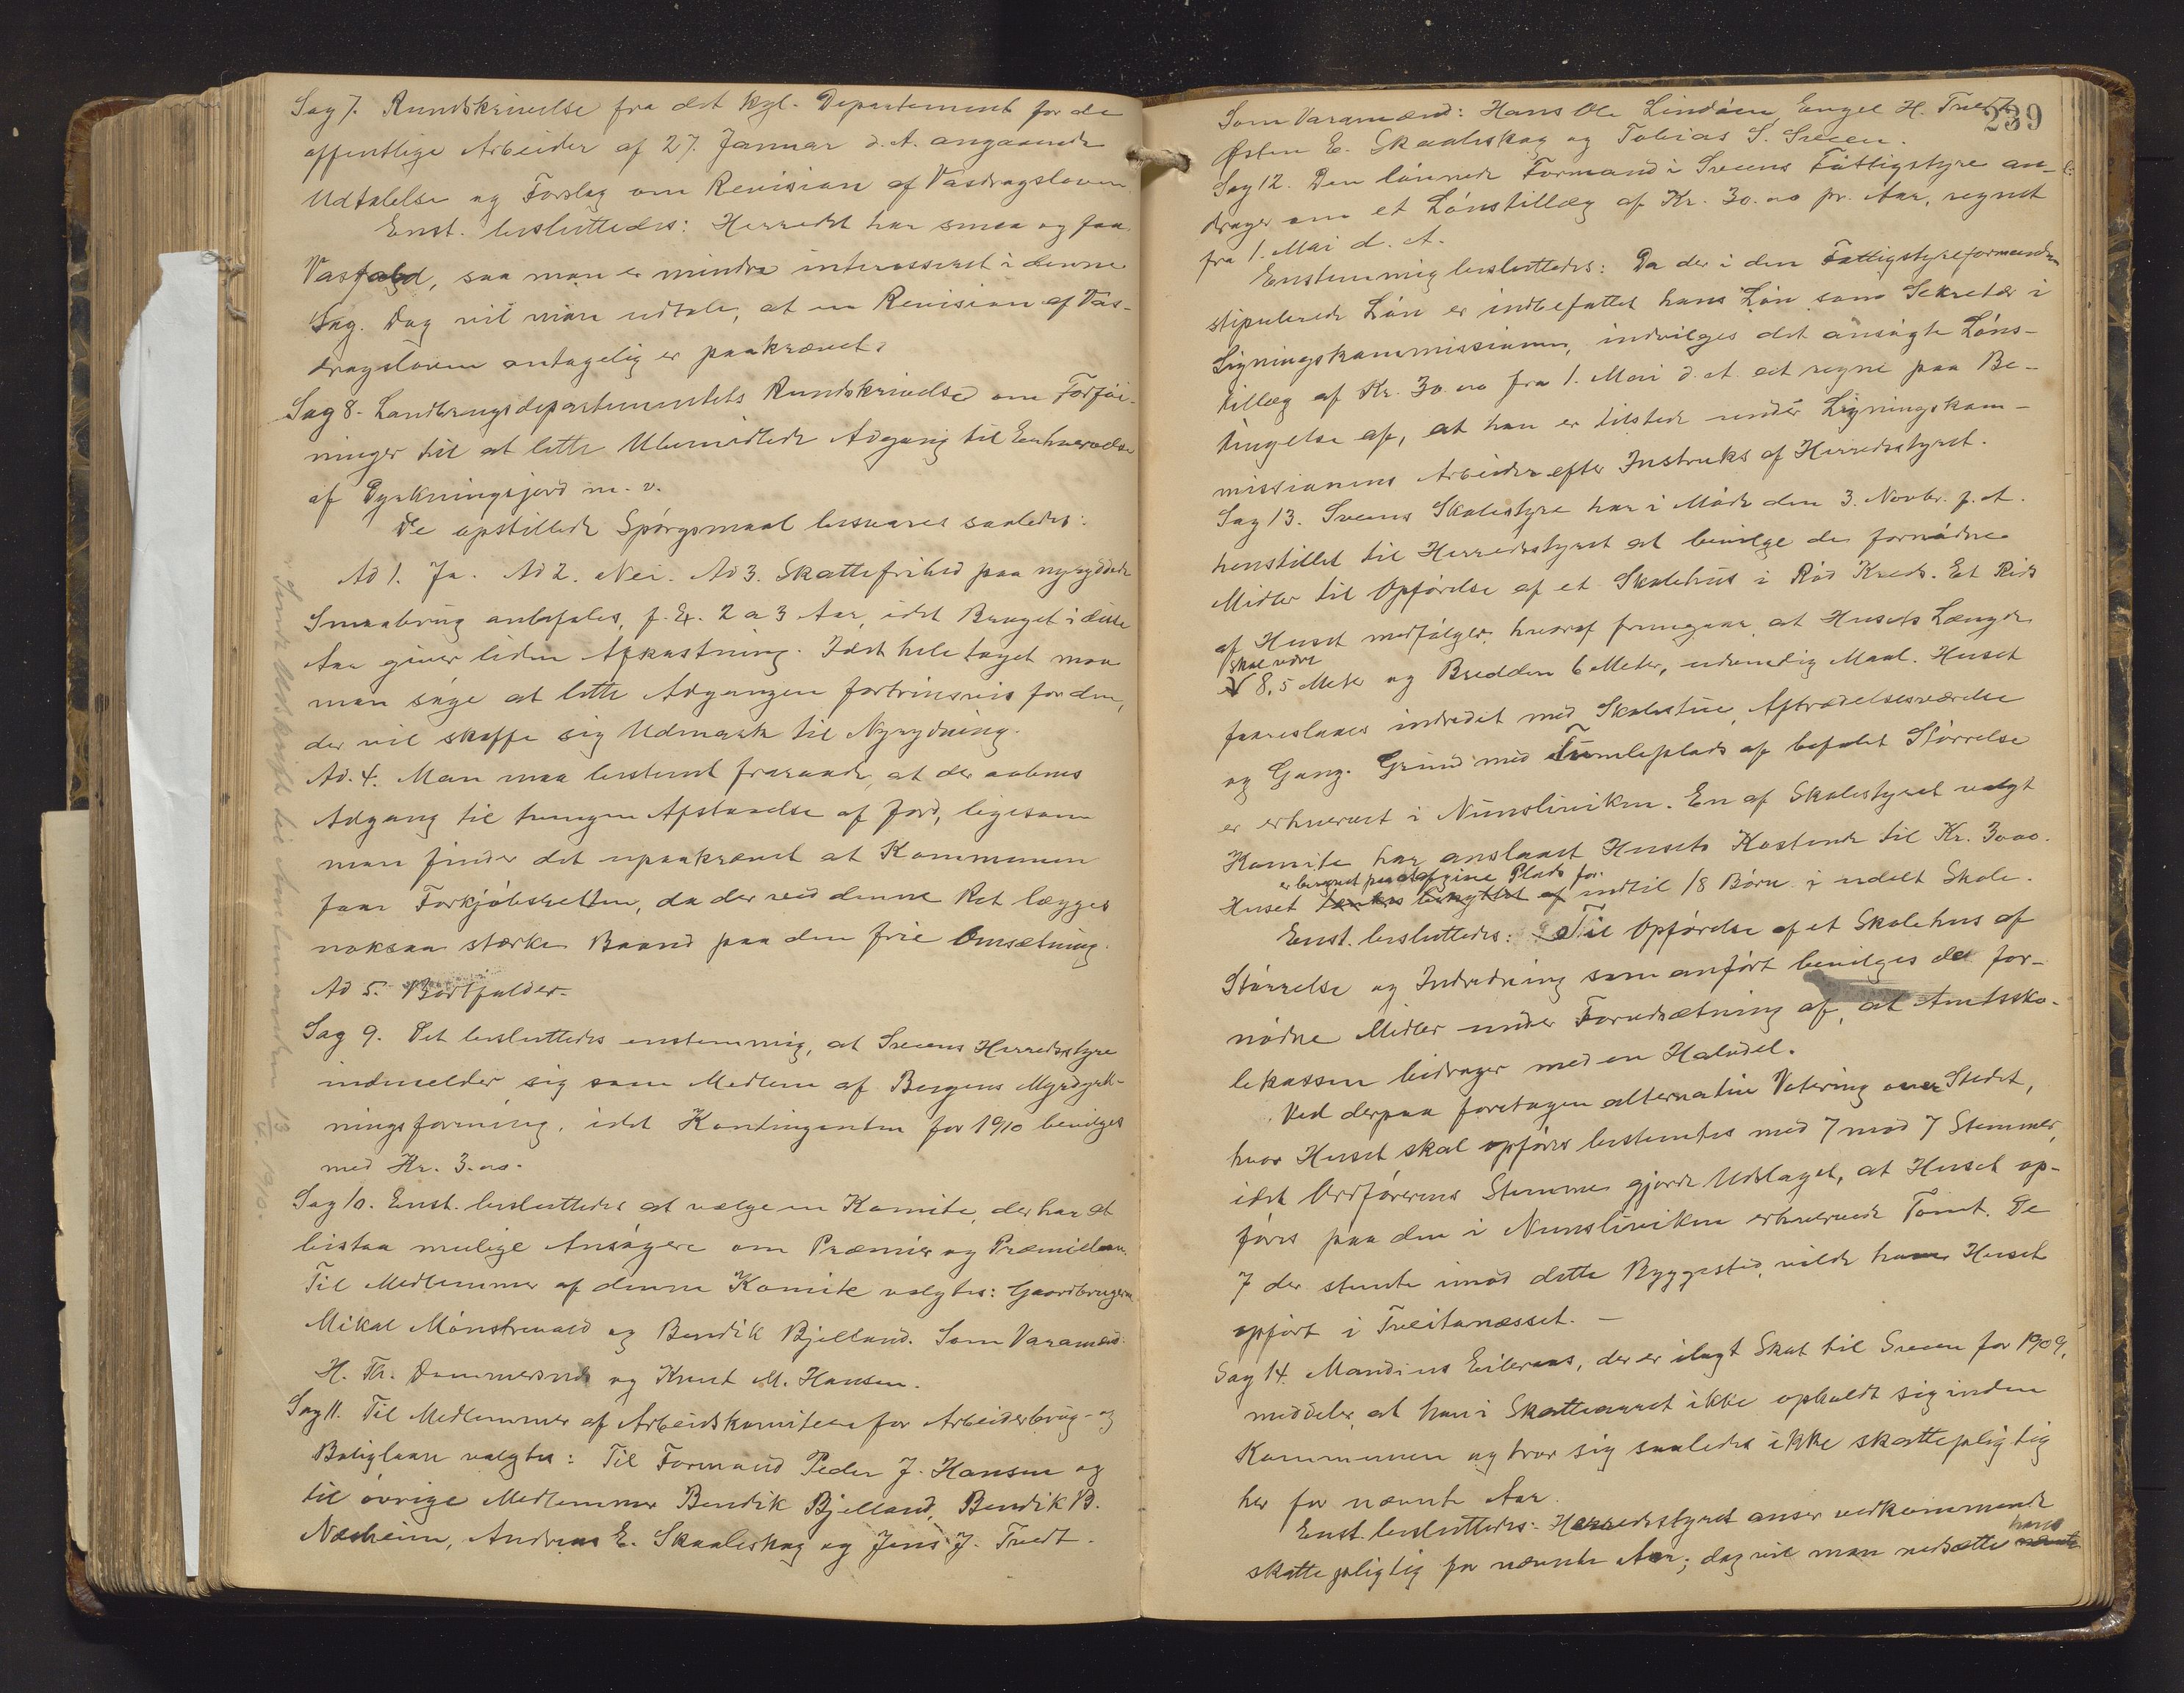 Sag 7. Rundskrivelse fra det kgl. Departement for de
offentlige Arbeider af 27. Januar d. A. angaaende
Udtalelse og Forslag om Revision af Vasdragsloven.
Enst. besluttedes: Herredet har smaa og faa
Vasfald, saa man er mindre interesseret i denne
Sag. Dog vil man udtale, at en Revision af Vas-
dragsloven antagelig er paakrævet.
Sag 8. Landbrugsdepartementets Rundskrivelse om Forføi-
ninger til at lette Ubemidlede Adgang til Erhvervelse
af Dyrkningsjord m. v.
De opstillede Spørgsmaal besvares saaledes:
Ad 1. Ja. Ad 2. Nei. Ad 3. Skattefrihed paa nyryddede
Smaabrug anbefales, f. Ex. 2 a 3 Aar, idet Bruget i disse
Aar giver liden Afkastning. I det hele taget maa
man søge at lette Adgangen fortrinsvis for dem,
der vil skaffe sig Udmark til Nyrydning.
Ad. 4. Man maa bestemt fraraade, at der aabnes
Adgang til tvungen Afstaaelse af Jord, ligesom
man finder det upaakrævet at Kommunen
faar Forkjøbsretten, da der ved denne Ret lægges
noksaa stærke Baand paa den frie Omsætning.
Ad 5. Bortfalder.
Sag 9. Det besluttedes enstemmig, at Sveens Herredsstyre
indmelder sig som Medlem af Bergens Myrdyrk-
ningsforening, idet Kontingenten for 1910 bevilges
med Kr. 3.00.
Sag 10. Enst. besluttedes at vælge en Komite, der har at
bistaa mulige Ansøgere om Præmier og Præmielaan.
Til Medlemmer af denne Komite valgtes: Gaardbrugerne
Mikal Mønstrevold og Bendik Bjelland. Som Varamænd:
H. Th. Dommersnes og Knut M. Hansen.
Sag 11. Til Medlemmer af Arbeidskomiteen for Arbeiderbrug- og
Boliglaan valgtes: Til Formand Peder J. Hansen og
til øvrige Medlemmer Bendik Bjelland, Bendik B.
Næsheim, Andreas E. Skaaleskog og Jens J. Tvedt.
Sendt Udskrift til Amtmanden 13/4 1910.
239
Som Varamænd: Hans Ole Lindøen, Engel H. Tvedt
Østen E. Skaaleskog og Tobias S. Sveen.
Sag 12. Den lønnede Formand i Sveens Fattigstyre an-
drager om et Lønstillæg af Kr. 30.00 pr. Aar, regnet
fra 1. Mai d. A.
Enstemmig besluttedes: Da der i den Fattigstyreformanden
stipulerede Løn er indbefattet hans Løn som Sekretær i
Ligningskommissionen, indvilges det ansøgte Løns-
tillæg af Kr. 30.00 fra 1. Mai d. A. at regne paa Be-
tingelse af, at han er tilstede under Ligningskom-
missionens Arbeider efter Instruks af Herredsstyret.
Sag 13. Sveens Skolestyre har i Møde den 3. Novbr. f. A.
henstillet til Herredsstyret at bevilge de fornødne
Midler til Opførelse af et Skolehus i Rød Kreds. Et Rids
af Huset medfølger, hvoraf fremgaar, at Husets Længde
skal være
8,5 Meter og Bredden 6 Meter, udvendig Maal. Huset
foreslaaes indredet med Skolestue, Aftrædelsesværelse
og Gang. Grund med Tumleplads af befalet Størrelse
er erhvervet i Nunsliviken. En af Skolestyret valgt
Komite har anslaaet Husets Kostende til Kr. 3000.
er beregnet paa at give Plads for
Huset tænkes benyttet af indtil 18 Børn i udelt Skole.
Enst. besluttedes: Til Opførelse af et Skolehus af
Størrelse og Indredning som anført bevilges de for-
nødne Midler under Forudsætning af, at Amtssko-
lekassen bidrager med en Halvdel.
Ved derpaa foretagen alternativ Votering over Stedet,
hvor Huset skal opføres bestemtes med 7 mod 7 Stemmer,
idet Ordførerens Stemme gjorde Udslaget, at Huset op-
føres paa den i Nunsliviken erhvervede Tomt. De
7 der stemte imod dette Byggested, vilde have Huset
opført i Tveitanæsset. —
Sag 14. Mandius Eileraas, der er ilagt Skat til Sveen for 1909,
meddeler, at han i Skatteaaret ikke opholdt sig inden
Kommunen og tror sig saaledes ikke skattepligtig
her for nævnte Aar.
Enst. besluttedes: Herredsstyret anser vedkommende
hans
skattepligtig for nævnte Aar; dog vil man nedsætte